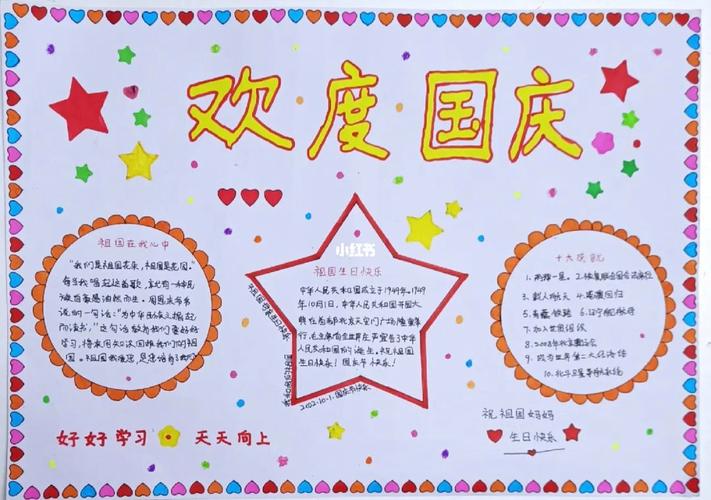 欢度国庆
祖国在我心中
"我们是祖国花朵,祖国是花园。"
每当我唱起这首歌,就有一种民
说的一句话:"为中华之崛起
而读书,"这句话教育我们要好好
学习,将来
国。祖国我爱您,是您培育了我们
小红书
祖国生日快乐
中华人民共和国成立于1949年。1949
年10月1日,中华人民共和国开国大
典在首都北京天安门广场隆重举
行,毛主席向全世界庄严宣告了中华
人民共和国的诞生。祝祖国
生日快乐!国庆节快乐!
2022.10.1.国庆节快乐
十大成就
1.两弹一星。2.恢复联合国合法席位
3.载人航天 4.港澳回归
5.青藏铁路 6.辽宁舰服役
7.加入世贸组织
8.2008年北京奥运会
9.成为世界第二大经济体
10.北斗卫星导航系统
好好学习 天天向上
祝祖国妈妈
生日快乐